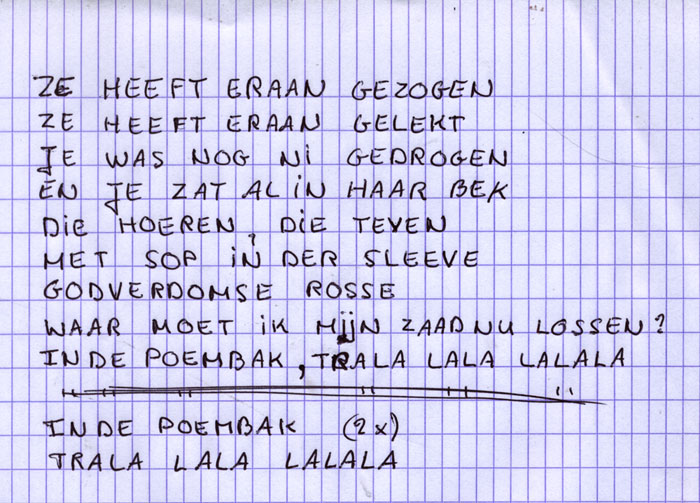 ZE HEEFT ERAAN GEZOGEN
ZE HEEFT ERAAN GELEKT
JE WAS NOG Ni GEDROGEN
EN JE ZAT AL iN HAAR BEK
DiE HOEREN, DiE TEVEN
MET SOP iN DER SLEEVE
GODVERDOMSE ROSSE
WAAR MOET iK MijN ZAAD NU LOSSEN?
IN DE POEMBAK, TRALA LALA LALALA
IN DE POEMBAK (2x)
TRALA LALA LALALA